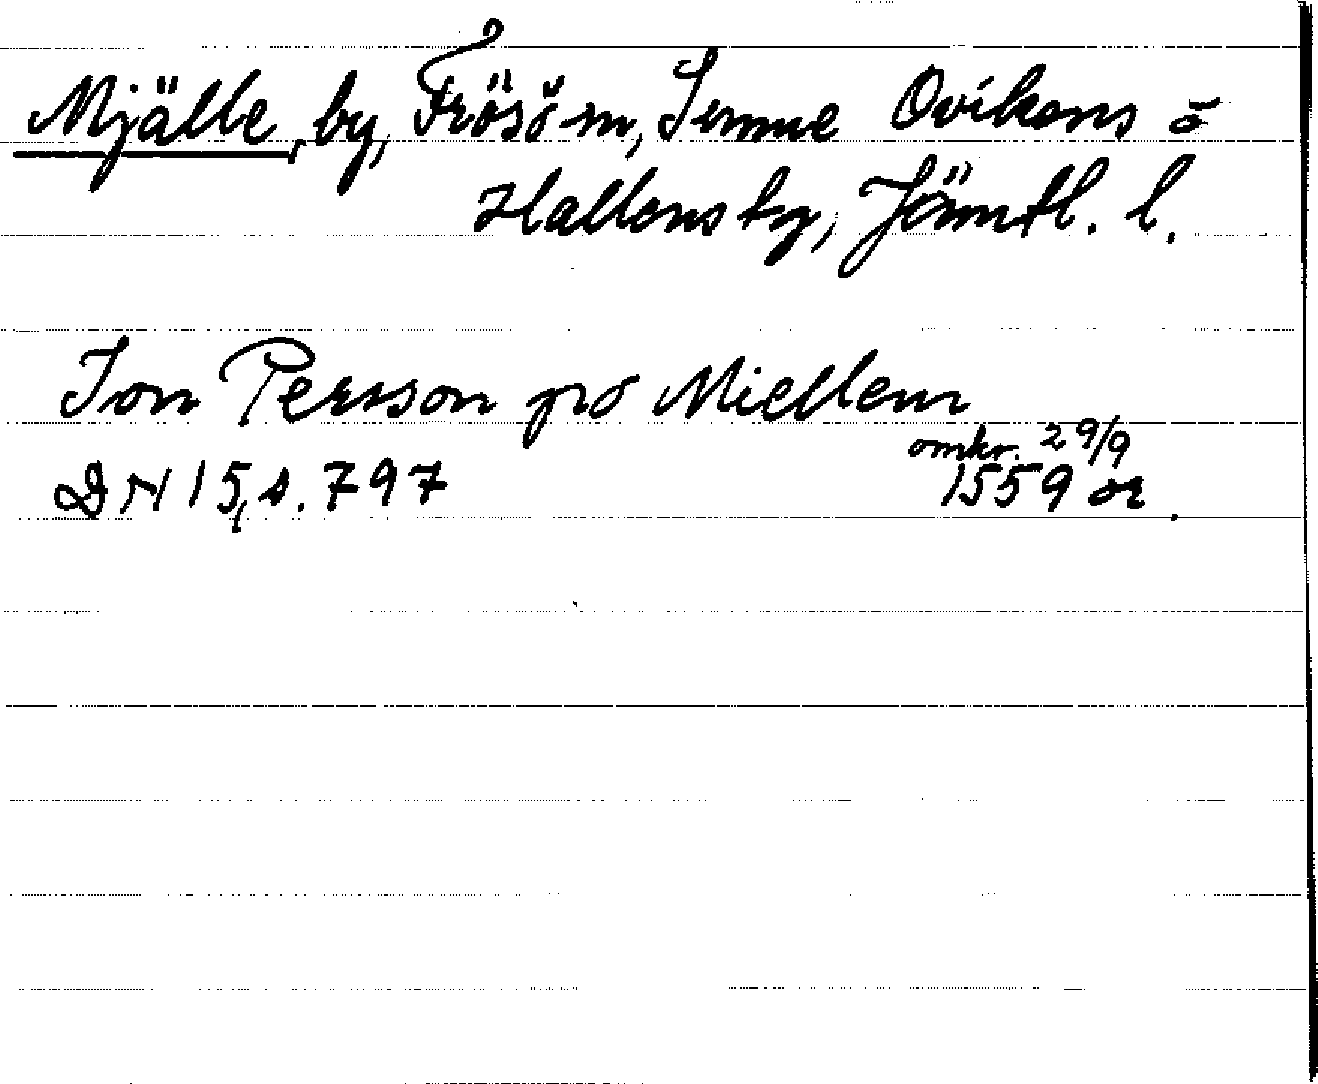 Mjälle, by, Frösö sn, Sunne Ovikens o
Hallens tg, Jämtl. l.
Jon Persson pro Miellem
omkr. 29/9
DN 15, s. 797 1559 or.